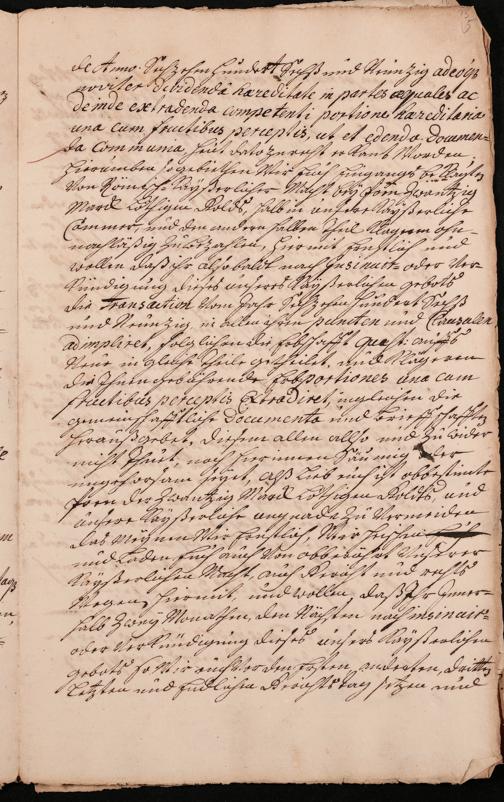 de Anno Sechzehn hundert Sechs und Neünzig adeoq
noviter dividenda hæreditate in partes æquales ac
deinde extradenda competenti portione hæreditaria
una cum fructibus perceptis, ut et edenda documen-
ta communia heut dato zu recht erkant worden;
Hierumben so gebiethen Wir Euch eingangs
Von Römisch Kayßerlicher Macht bey Pöen zwantzig
Marck löthigen Golds, halb in unsere Kayßerliche
Cammer, und den andern halben theil Klägern ohn-
nachläßig zu bezahlen, hiermit ernstlich und
wollen daß ihr alsobaldt nach insinuir- oder Ver-
kündigung dieses unsers Kayßerlichen gebots
die Transaction vom Jahr Sechzehn hundert Sechs
und Neünzig in allen ihren puncten und Clausulen
adimpliret, folglichen die Erbschafft quæst: aufs
Neüe in gleiche theile getheilet, und Klägeren
die Ihnen gebührende Erbportiones una cum
fructibus perceptis Extradiret, ingleichen die
gemeinschafftliche Documenta und briefschafften
heraußgebet, diesem allen also und zu wider
nicht thuet, noch hierinnen säumig oder
ungehorsam seyet, alß lieb euch ist obbestimte
Pöen der zwantzig Marck löthigen Golds, und
unsere Kayßerliche ungnade zu vermeiden
das meynen Wir Ernstlich, Wir heischen
und laden Euch auch von obberührt Unserer
Kayßerlichen Macht, auch Gericht und rechts
wegen hiermit, und wollen, daß Ihr Inner-
halb zwey Monathen, den Nächsten nach insinuir-
oder Verkündigung dieses unsers Kayßerlichen
gebots so Wir euch vor den Ersten, anderten, dritten
letzten und Endlichen Gerichtstag setzen und